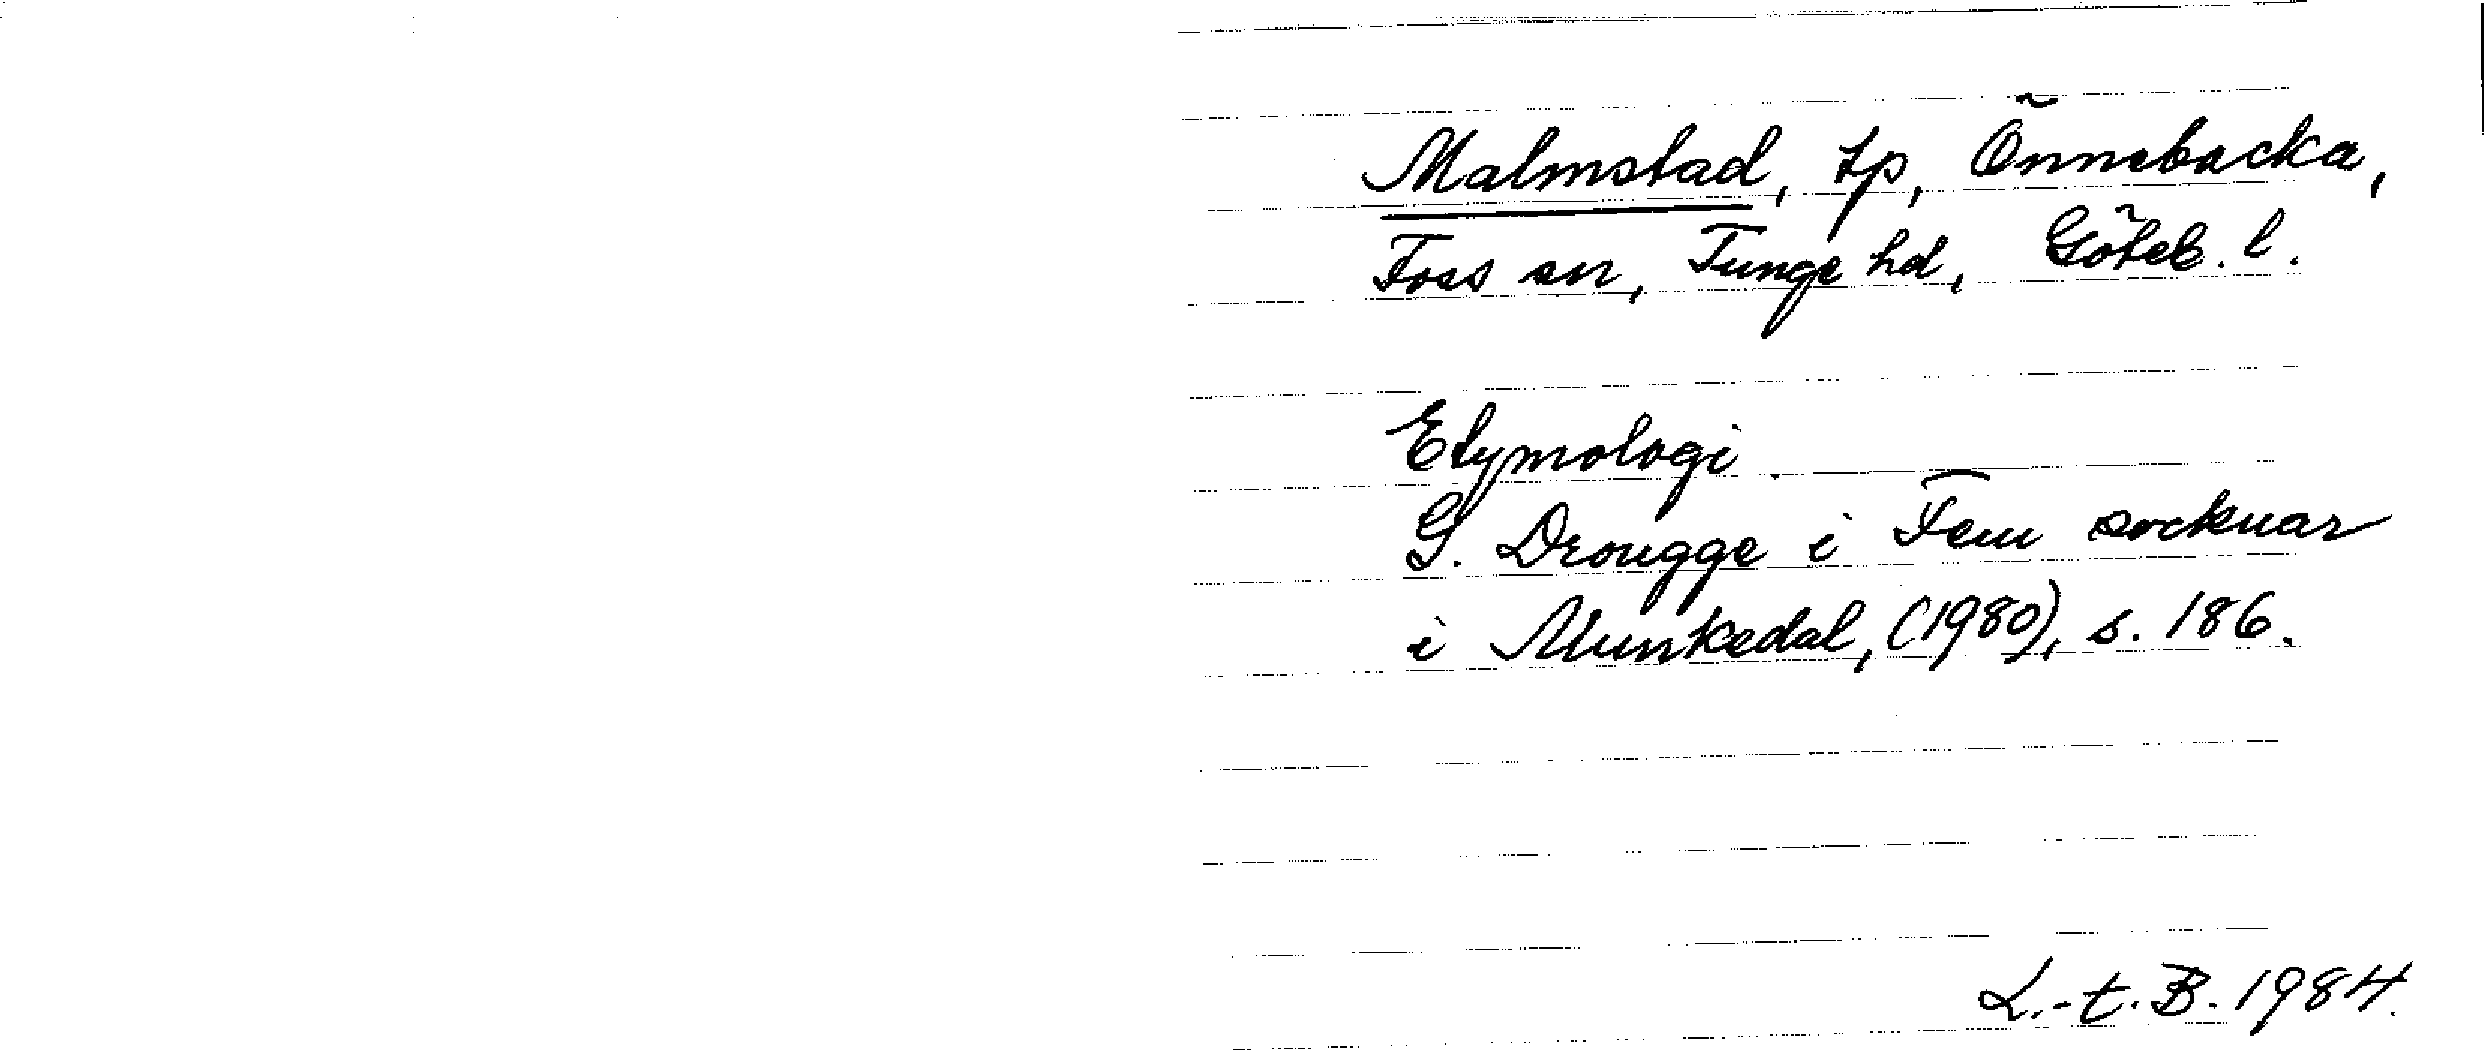 Malmstad, tp, Önnebacka,
Foss sn, Tunge hd, Göteb. l.
Etymologi.
G. Drougge i Fem socknar
i Munkedal, (1980), s. 186.
L.-t. B. 1984.